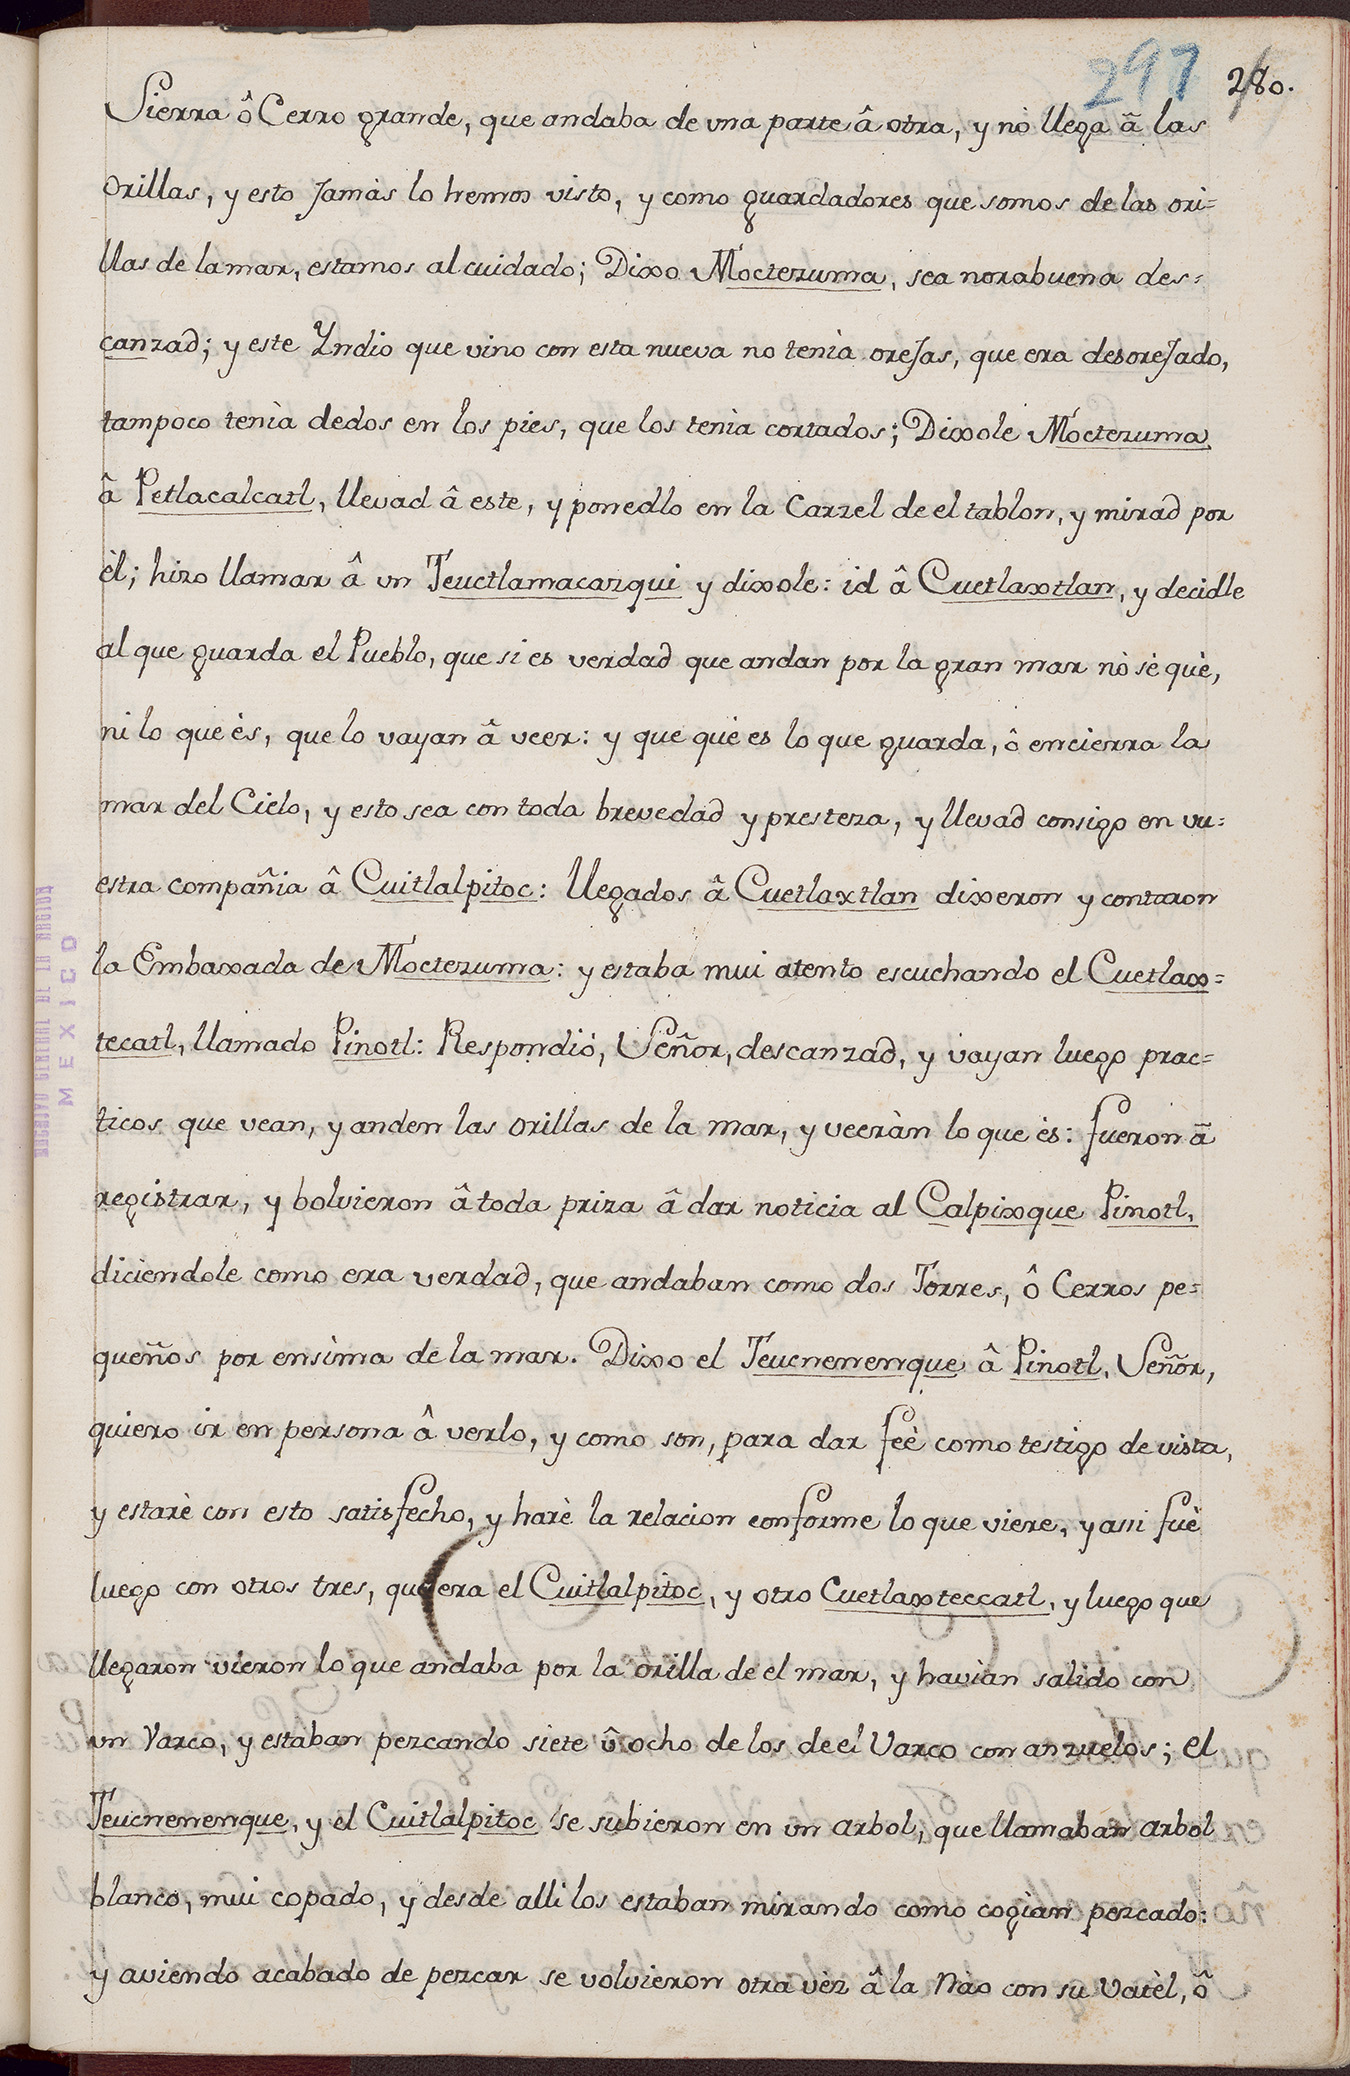 297 280.
Sierra ô Cerro grande, que andaba de una parte â otra, y nò llega ã las
orillas, y esto Jamàs lo hemos visto, y como guardadores que somos de las ori=
llas de la mar, estamos al cuidado; Dixo Moctezuma, sea norabuena des=
canzad; y este Yndio que vino con esta nueva no tenìa oreJas, que era desoreJado,
tampoco tenìa dedos en los pies, que los tenìa cortados; Dixole Moctezuma
â Petlacalcatl, llevad â este, y ponedlo en la Carzel de el tablon, y mirad por
èl; hizo llamar â un Teuctlamacazqui y dixole: id â Cuetlaxtlan, y decidle
al que guarda el Pueblo, que si es verdad que andan por la gran mar nò sè què,
ni lo que ès, que lo vayan â veer: y que què es lo que guarda, ô encierra la
mar del Cielo, y esto sea con toda brevedad y presteza, y llevad consigo en vu=
estra compañia â Cuitlalpitoc: llegados â Cuetlaxtlan dixeron y contaron
la Embaxada de Moctezuma: y estaba mui atento escuchando el Cuetlax=
tecatl, llamado Pinotl: Respondiò, Señor, descanzad, y vayan luego prac=
ticos que vean, y anden las orillas de la mar, y veeràn lo que ès: fueron ã
registrar, y bolvieron â toda priza â dar noticia al Calpixque Pinotl,
diciendole como era verdad, que andaban como dos Torres, ô Cerros pe=
queños por ensima de la mar. Dixo el Teucnenenque â Pinotl, Señor,
quiero ir en persona â verlo, y como son, para dar feè como testigo de vista,
y estarè con esto satisfecho, y harè la relacion conforme lo que viere, y assi fuè
luego con otros tres, que era el Cuitlalpitoc, y otro Cuetlaxteccatl, y luego que
llegaron vieron lo que andaba por la orilla de el mar, y havian salido con
un Varco, y estaban pezcando siete û ocho de los de el Varco con anzuelos; el
Teucnenenque, y el Cuitlalpitoc se subieron en un arbol, que llamaban arbol
blanco, mui copado, y desde alli los estaban mirando como cogian pezcado:
y aviendo acabado de pezcar se volvieron otra vèz â la Nào con su Vatèl, ô
ARCHIVO GENERAL DE LA NACION
MEXICO